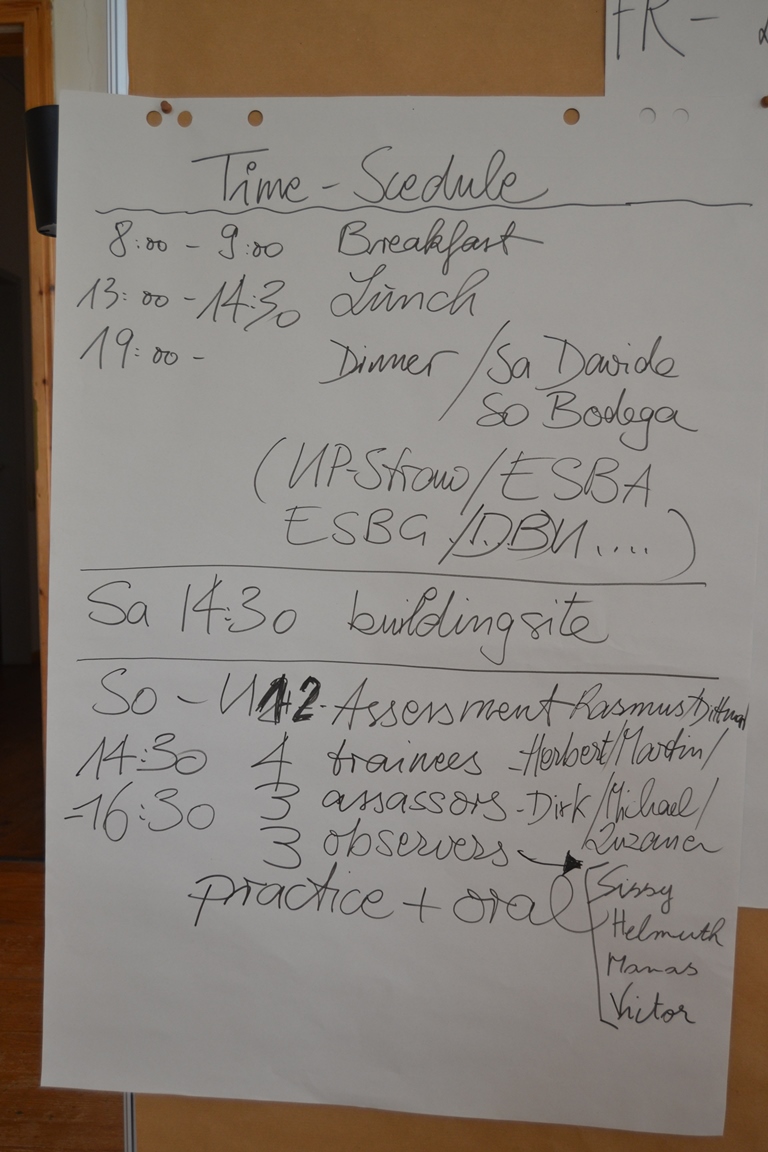 FR -
Time - Scedule
8:00 - 9:00 Breakfast
13:00 - 14:30 Lunch
19:00 - Dinner / Sa Davide
So Bodega
(UP-Straw / ESBA
ESBG / DBU ....)
Sa 14:30 buildingsite
So - U 12 - Assessment Rasmus / Dittmar
14:30 4 trainees - Herbert / Martin /
-16:30 3 assassors - Dirk / Michael /
3 observers Zuzana
practice + oral
Sissy
Helmuth
Manas
Victor